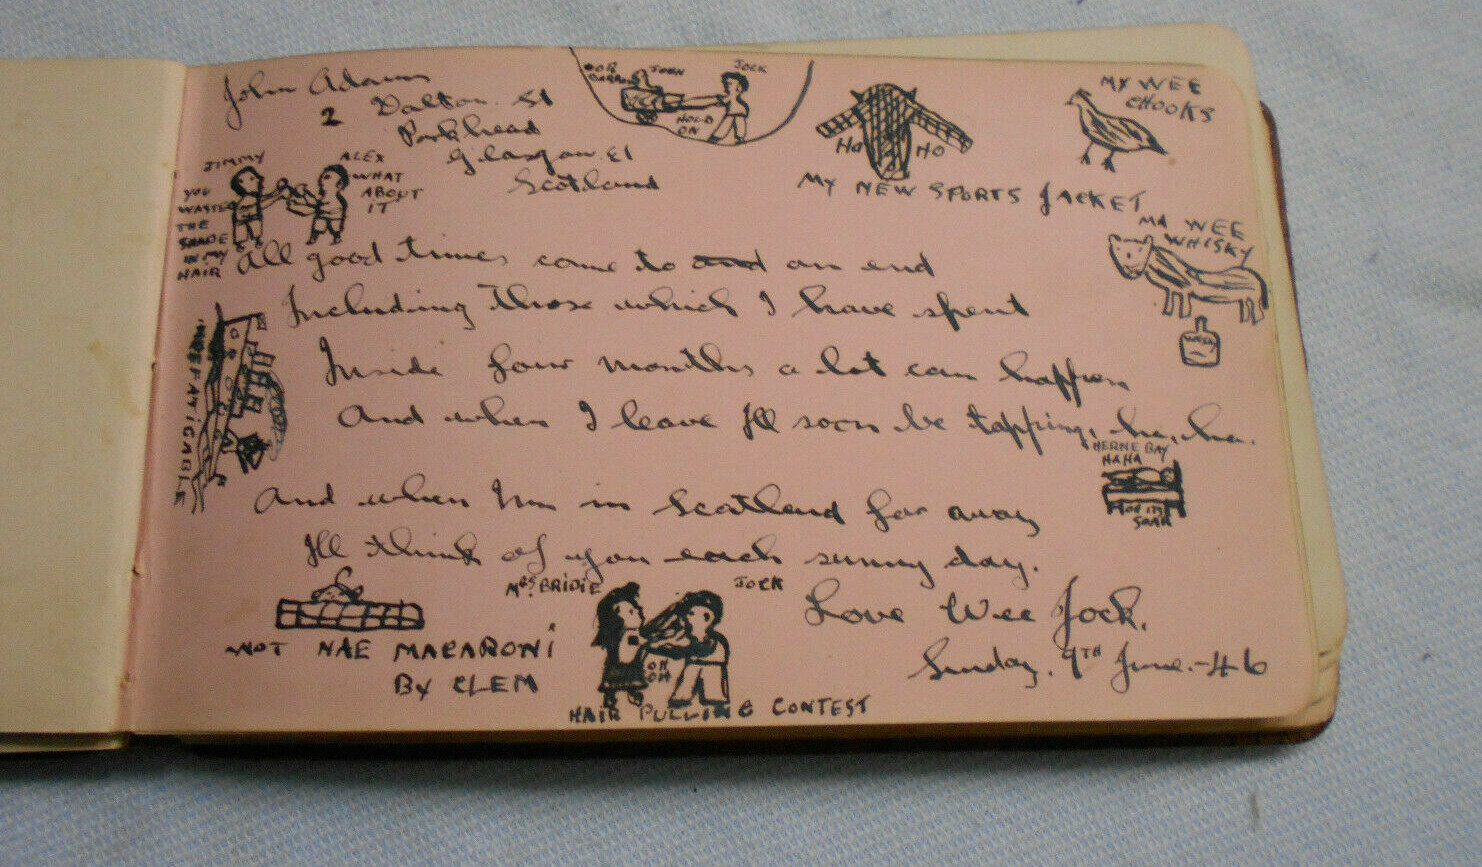 John Adams
2 Dalton. St
Parkhead
Glasgow. E1
Scotland
OOR BARROW
JOHN
JOCK
HOLD ON
HA HO
MY NEW SPORTS JACKET
MY WEE CHOOKS
JIMMY
YOU WASTED THE SHADE IN MY HAIR
ALEX
WHAT ABOUT IT
MA WEE WHISKY
All good times come to and an end
Including those which I have spent
Inside four months a lot can happen
And when I leave I'll soon be tapping, ha, ha.
INDEFATIGABLE
HERNE BAY
HAHA
And when I'm in Scotland far away
I'll think of you each sunny day.
NOT NAE MACARONI
BY CLEM
MRS. BRIDIE
JOCK
OH OH
HAIR PULLING CONTEST
Love Wee Jock.
Sunday. 9TH June.-46